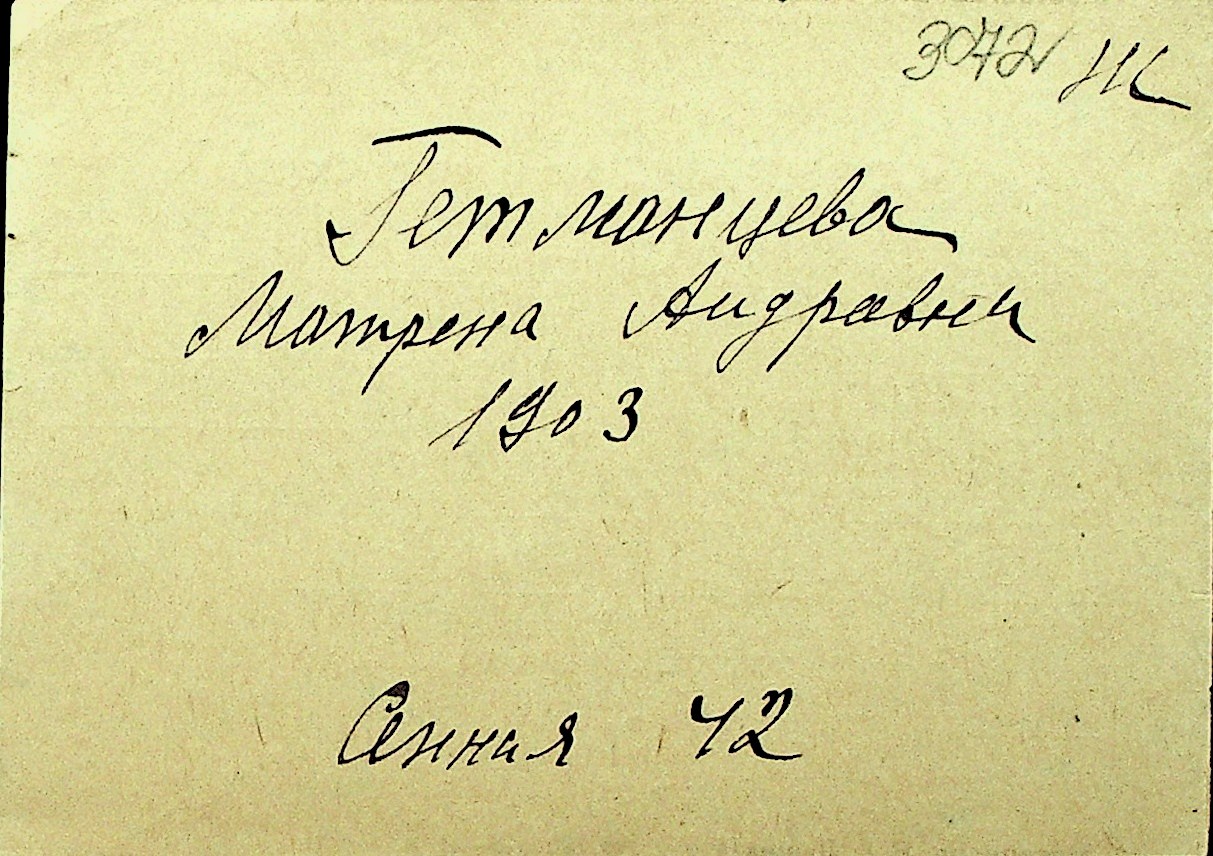 3072 Ж
Гетманцева
Матрена Андравна
1903
Сенная 42